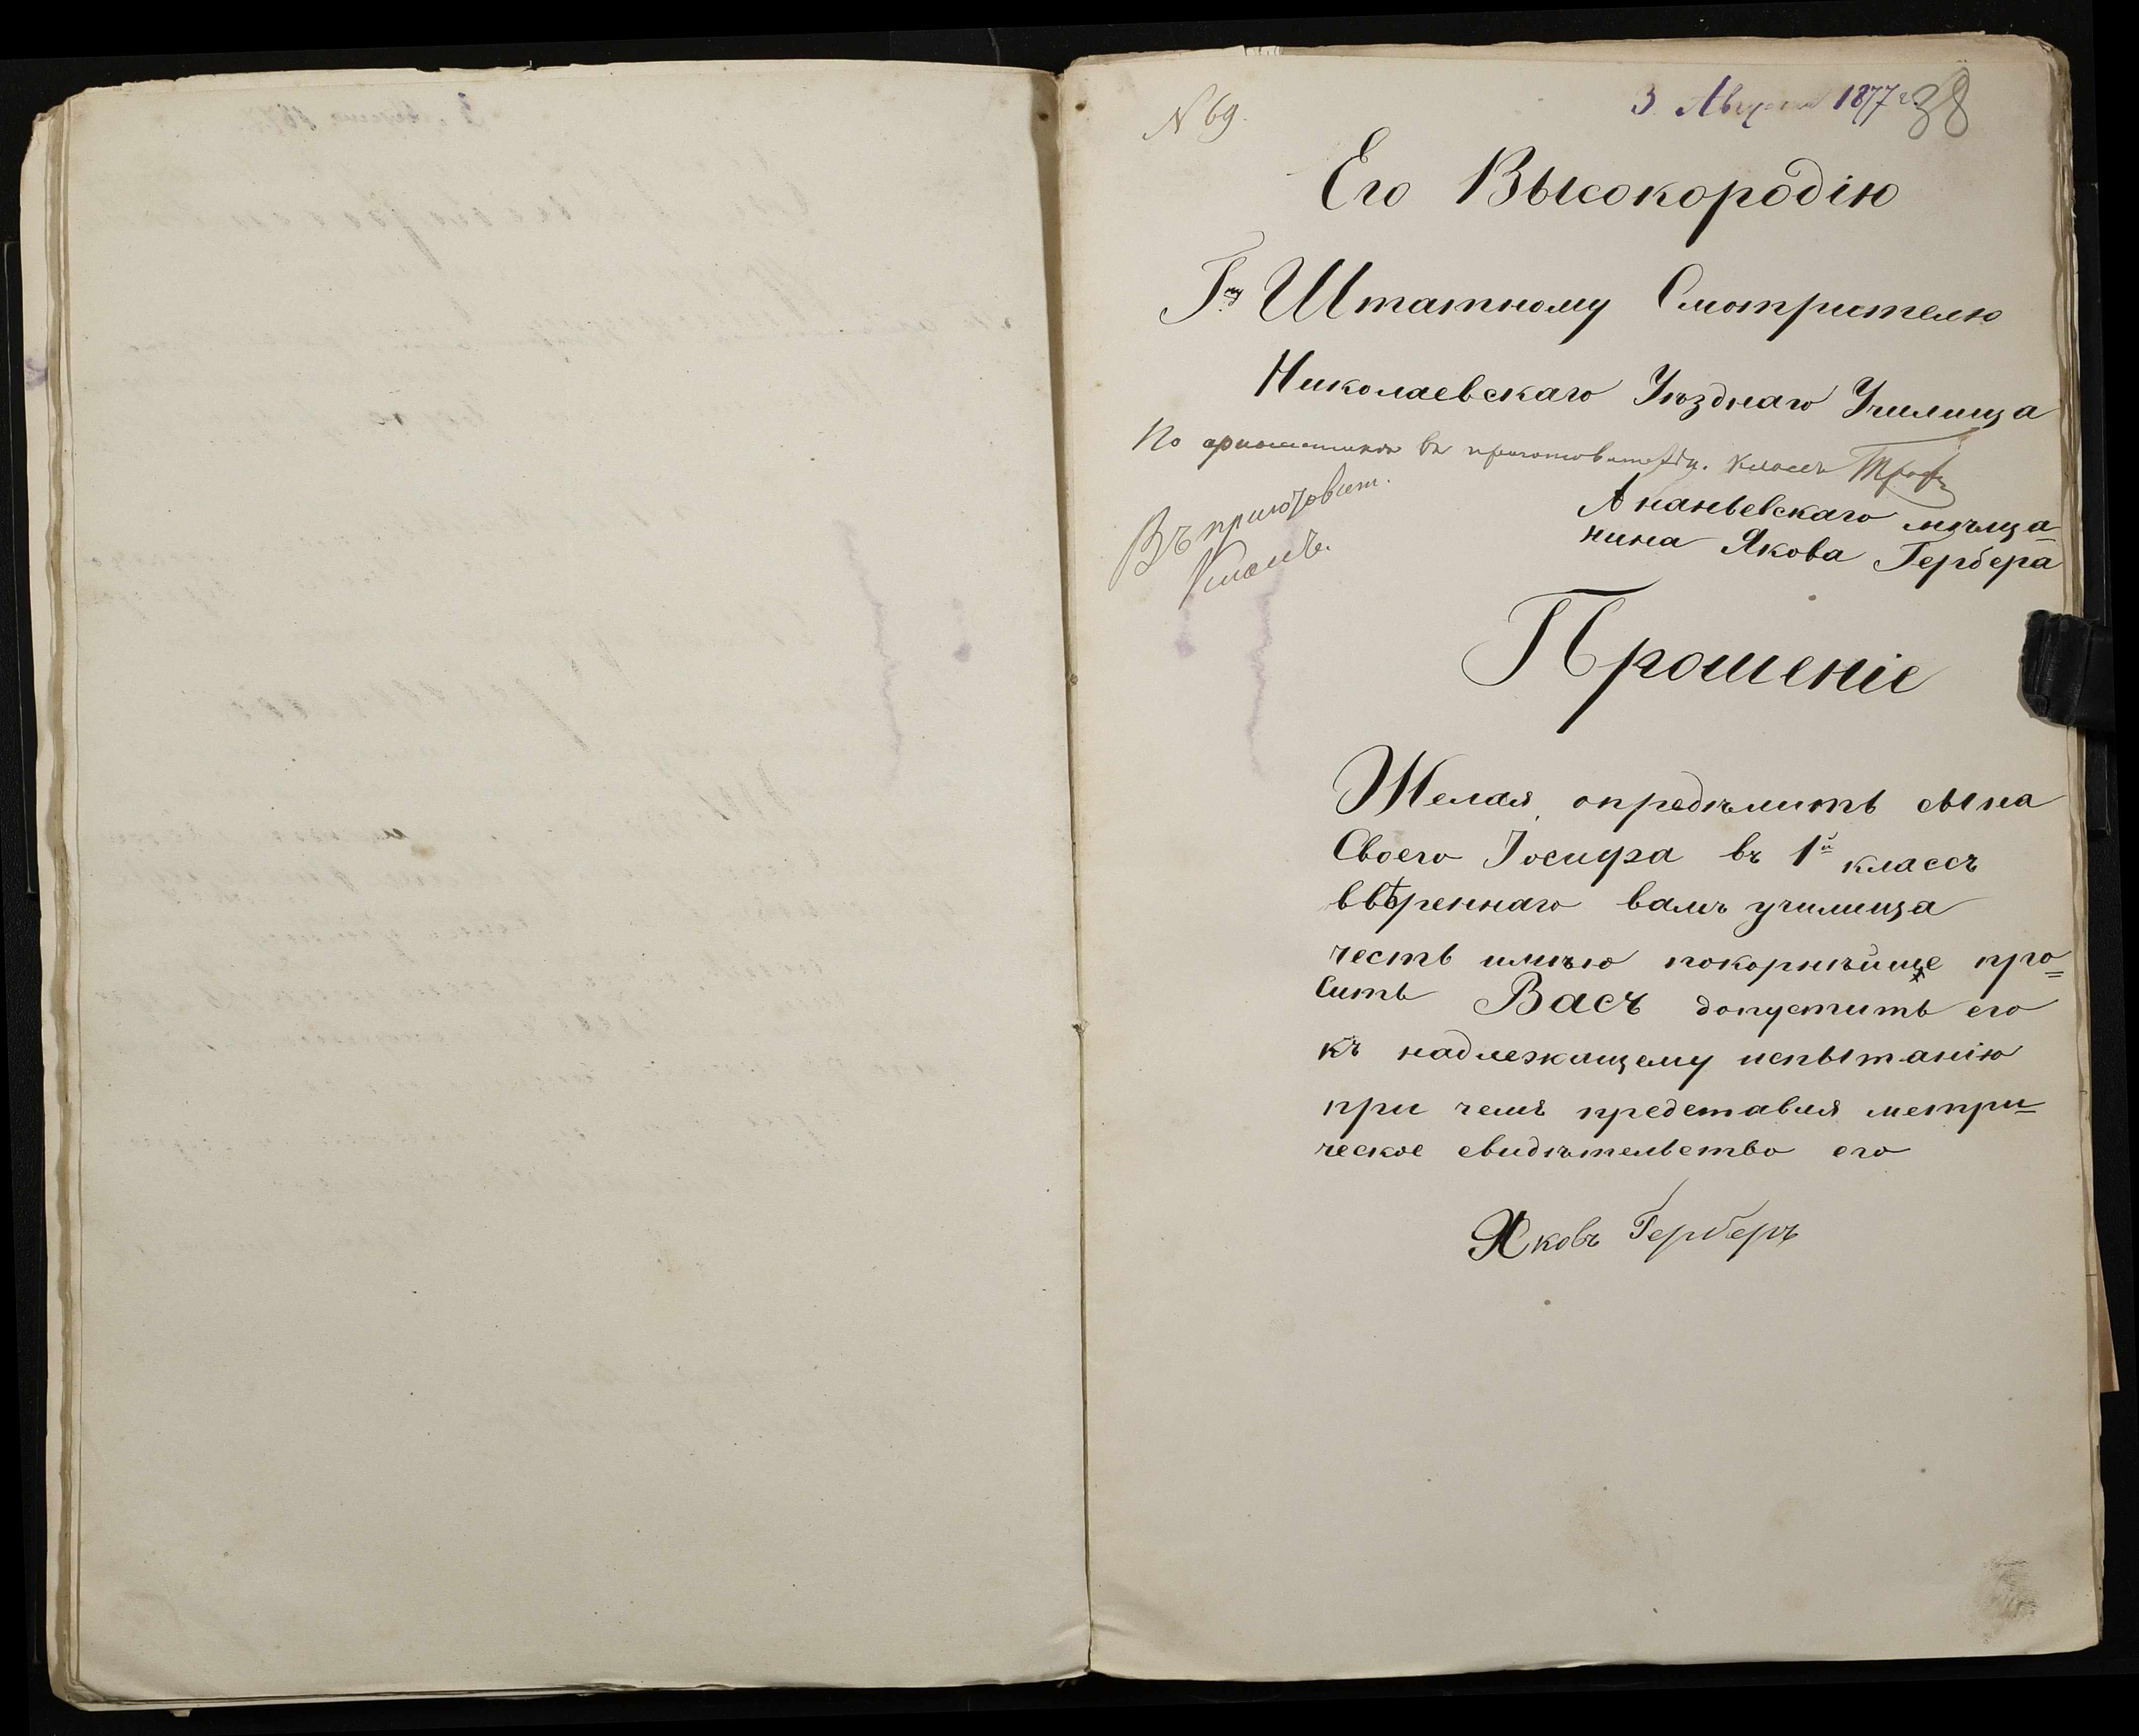 N 69.
3. Августа 1877 г.
38
Его Высокородію
Г-ну Штатному Смотрителю
Николаевскаго Уѣзднаго Училища
По ариѳметикѣ въ приготовительн. классъ
Въ приготовит.
классъ.
Ананьевскаго мѣща-
нина Якова Гербера
Прошеніе
Желая опредѣлить сына
Своего Іосифа въ 1й классъ
ввѣреннаго вамъ училища
честь имѣю покорнѣйше про=
сить Васъ допустить его
къ надлежащему испытанію
при чемъ представля метри=
ческое свидѣтельство его
Яковъ Герберъ